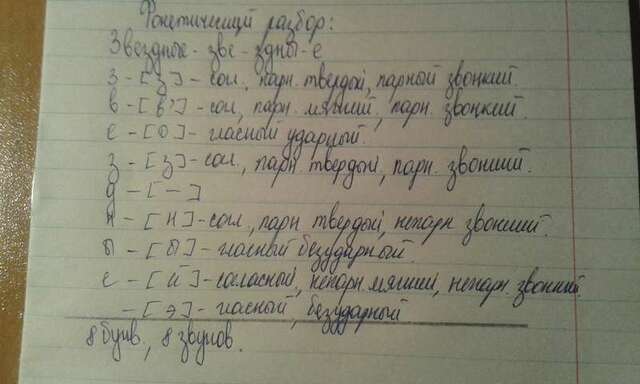 Фонетический разбор:
Звездные - зве - здны - е
з - [з] - согл., парн. твердый, парный звонкий.
в - [в'] - сог., парн. мягкий, парн. звонкий.
е - [о] - гласный ударный.
з - [з] - согл., парн. твердый, парн. звонкий.
д - [-]
н - [н] - согл., парн. твердый, непарн. звонкий.
ы - [ы] - гласный безударный.
е - [й] - согласный, непарн. мягкий, непарн. звонкий.
- [э] - гласный, безударный
8 букв, 8 звуков.